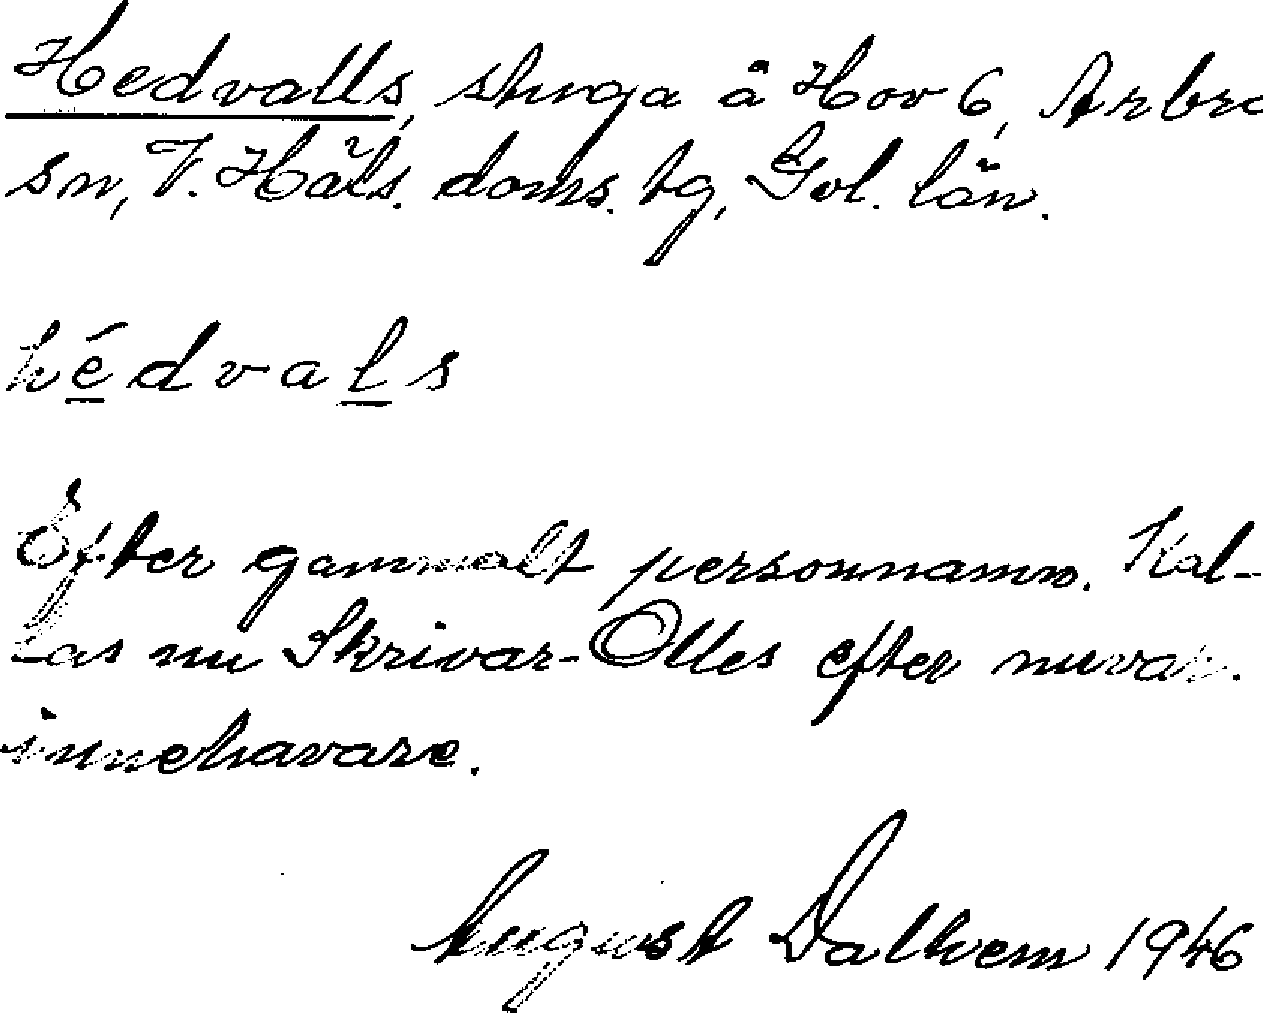 Hedvalls, stuga å Hov 6, Arbrå
sn, V. Häls. doms. tg, Gvl. län.
hédvals
Efter gammalt personnamn. Kal-
las nu Skrivar-Olles efter nuvar.
innehavare.
August Dalhem 1946